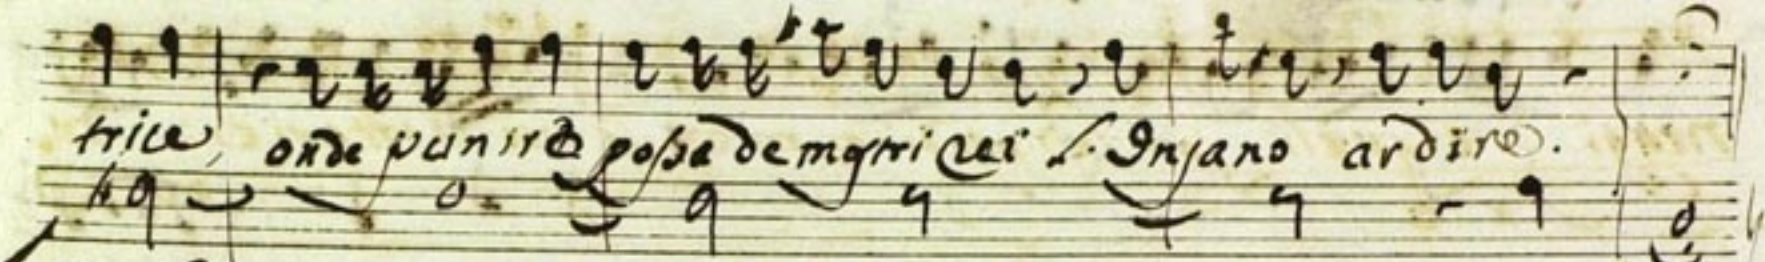 trice, onde punire possa de miei rei l'Insano ardire.